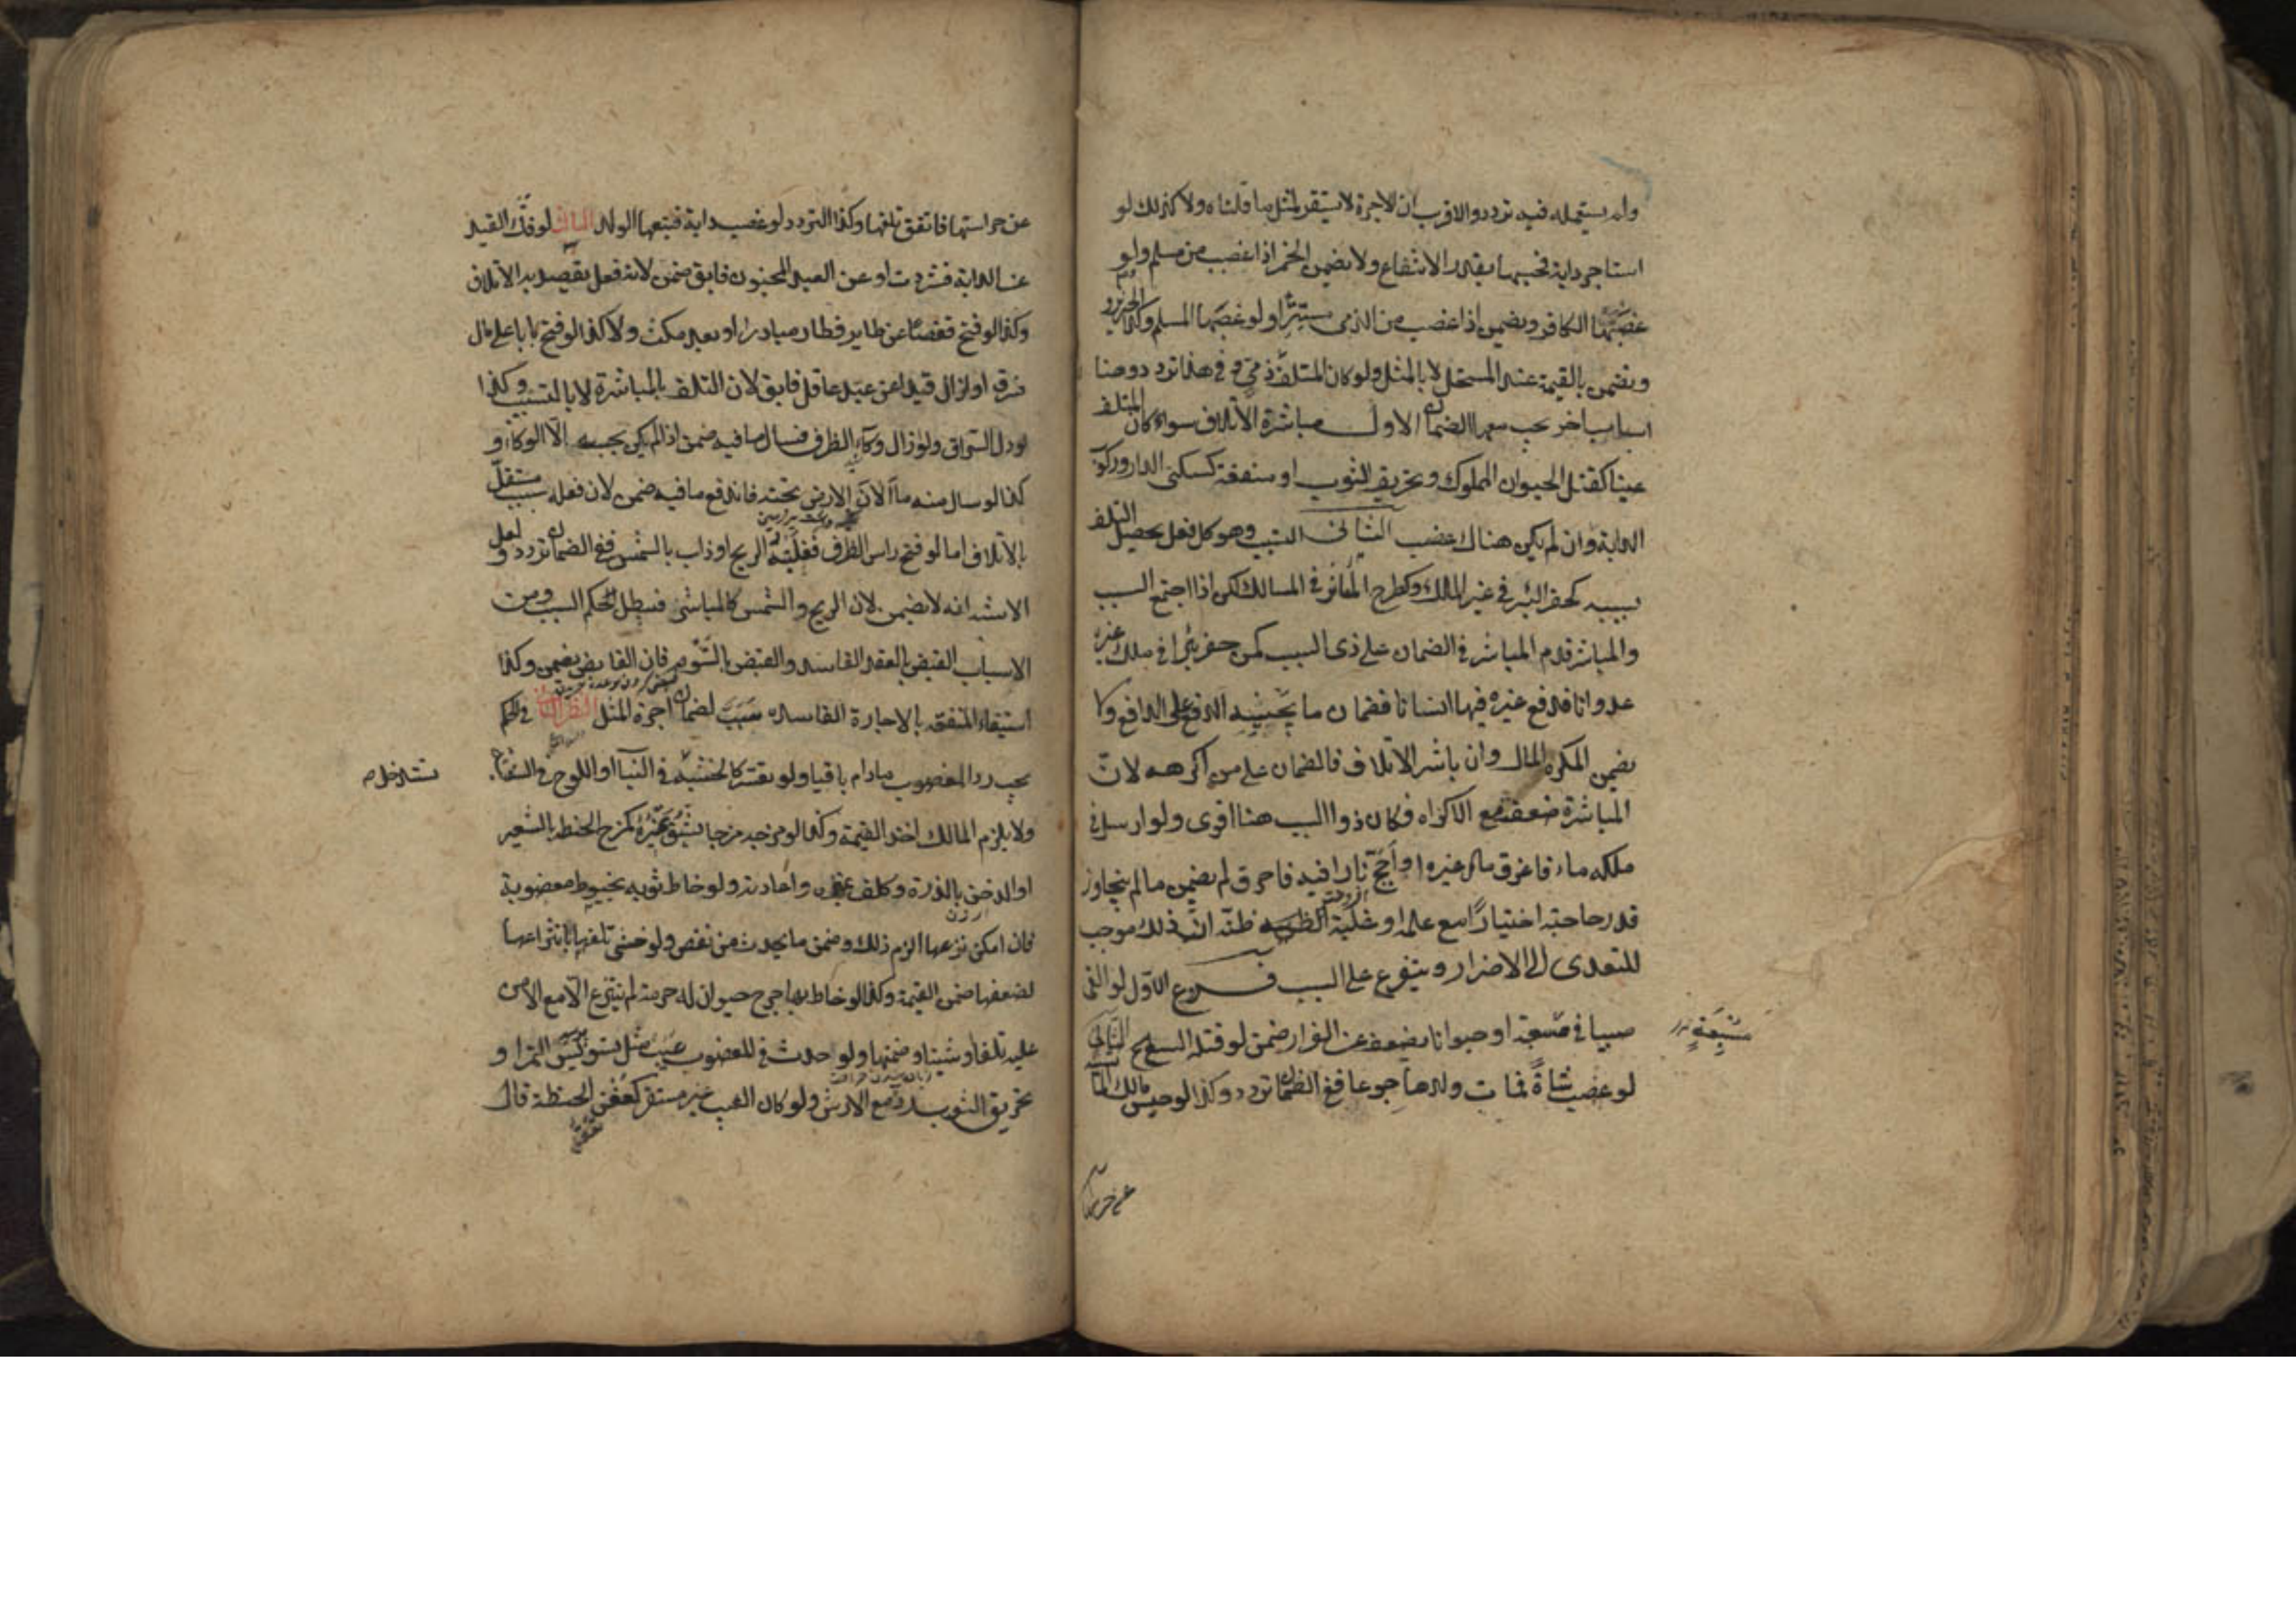 ولم يستعمله فيه تردد والاقرب ان الاجرة لا تستقر لمثل ما قلناه ولا كذلك لو
استاجر دابة فحبسها بقدر الانتفاع ولا يضمن الخمر اذا غصب من مسلم ولو
غصبها الكافر ويضمن اذا غصب من الذمى مستترا ولو غصبها المسلم وكذا الخنزير
ويضمن بالقيمة عند المستحل لا بالمثل ولو كان المتلف ذمي وفي هذا تردد وهنا
اسباب اخر يجب معها الضمان الاول مباشرة الاتلاف سواء كان المتلف
عينا كقتل الحيوان المملوك وتخريق الثوب او منفعة كسكنى الدار وركوب
الدابة وان لم يكن هناك غصب الثانى التسبب وهو كل فعل يحصل التلف
بسببه كحفر البئر في غير الملك وكطرح المعاثر في المسالك لكن اذا اجتمع السبب
والمباشر قدم المباشر في الضمان على ذى السبب كمن حفر بئرا في ملك غيره
عدوانا فدفع غيره فيها انسانا فضمان ما يجنيه الدفع على الدافع ولا
يضمن المكره المال وان باشر الاتلاف فالضمان على من اكرهه لان
المباشرة ضعفت مع الاكراه فكان ذو السبب هنا اقوى ولو ارسل في
ملكه ماء فاغرق مال غيره او اجج نارا فيه فاحرق لم يضمن ما لم يتجاوز
قدر حاجته اختيارا مع علمه او غلبة ظنه ان ذلك موجب
للتعدى الى الاضرار ويتفرع على السبب فروع الاول لو القى
صبيا في مسبعة او حيوانا يضعف عن الفرار ضمن لو قتله السبع الثانى
لو غصب شاة فمات ولدها جوعا ففي الضمان تردد وكذا لو حبس مالك الماشية
مسبعة
عن حراستها
عن حراستها فاتفق تلفها وكذا التردد لو غصب دابة فتبعها الولد الثالث لو فك القيد
عن الدابة فشردت او عن العبد المجنون فابق ضمن لانه فعل يقصد به الاتلاف
وكذا لو فتح قفصا عن طاير فطار مبادرا او بعد مكث ولا كذا لو فتح بابا على مال
فسرق او ازال قيدا عن عبد عاقل فابق لان التلف بالمباشرة لا بالتسبيب وكذا
لو دل السراق ولو ازال وكاء الظرف فسال ما فيه ضمن اذا لم يكن يحبسه الا الوكاء و
كذا لو سال منه ما الان الارض تحته فاندفع ما فيه ضمن لان فعله سبب مستقل
بالاتلاف اما لو فتح راس الظرف فقلبته الريح او ذاب بالشمس ففي الضمان تردد ولعل
الاشبه انه لا يضمن لان الريح والشمس كالمباشر فيبطل حكم السبب ومن
الاسباب القبض بالعقد الفاسد والقبض بالسوم فان القابض يضمن وكذا
استيفاء المنفعة بالاجارة الفاسدة سبب لضمان اجرة المثل النظر الثانى في الحكم
يجب رد المغصوب ما دام باقيا ولو تعسر كالخشبة في البناء او اللوح في السفينة
ولا يلزم المالك اخذ القيمة وكذا لو مزجه مزجا يشق تميزه كمزج الحنطة بالشعير
او الدخن بالذرة وكلف تميزه واعادته ولو خاط ثوبه بخيوط مغصوبة
فان امكن نزعها الزم ذلك وضمن ما يحدث من نقص ولو خشى تلفها بانتزاعها
لضعفها ضمن القيمة وكذا لو خاط بها جرح حيوان له حرمة لم ينتزع الا مع الامن
عليه تلفا وشينا وضمنها ولو حدث في المغصوب عيب مثل تسويس التمر او
تخريق الثوب رده مع الارش ولو كان العيب غير مستقر كعفن الحنطة قال